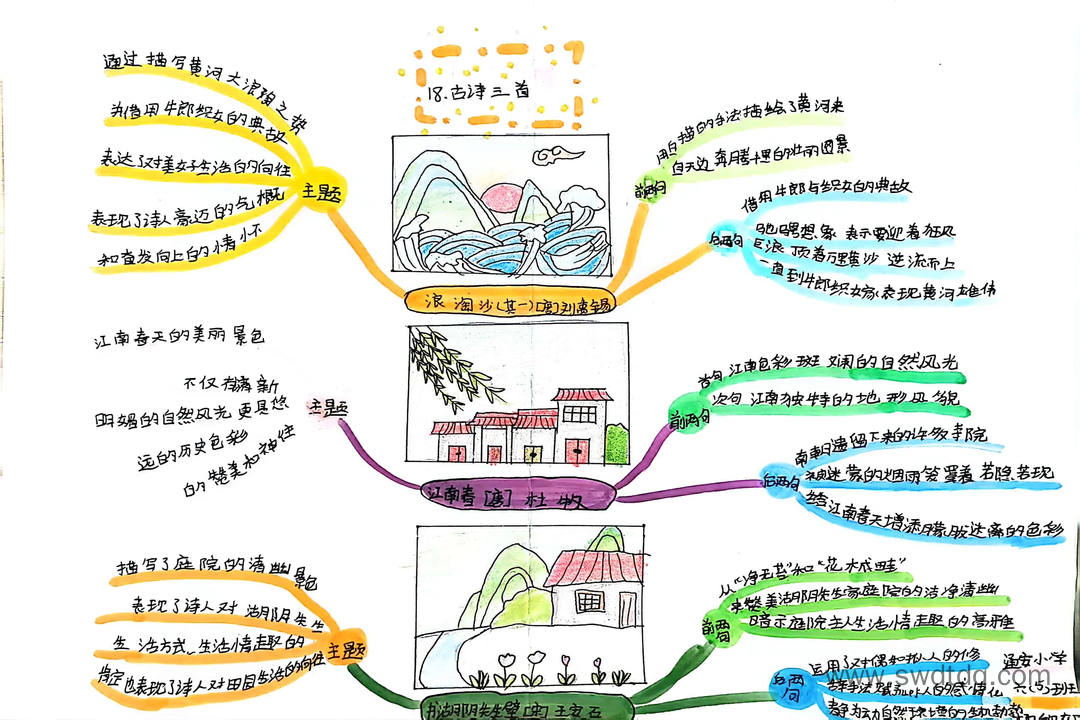 18.古诗三首
通过描写黄河大浪淘之势
为借用牛郎织女的典故
表达了对美好生活的向往
表现了诗人豪迈的气概
和奋发向上的情怀
主题
前两句
用白描的手法描绘了黄河来
自天边奔腾 的壮丽图景
后两句
借用牛郎与织女的典故
驰骋想象 表示要迎着狂风
巨浪 顶着万里黄沙 逆流而上
一直到牛郎织女家 表现黄河雄伟
浪淘沙(其一)[唐]刘禹锡
江南春天的美丽景色
不仅有清新
明媚的自然风光更具悠
远的历史色彩
的赞美和神往
主题
前两句
首句 江南色彩斑斓的自然风光
次句 江南独特的地形风貌
后两句
南朝遗留下来的许多寺院
被迷蒙的烟雨笼罩着 若隐若现
给江南春天增添朦胧 的色彩
江南春[唐]杜牧
描写了庭院的清幽景色
表现了诗人对 湖阴先生
生活方式、生活情趣的
肯定也表现了诗人对田园生活的向往
主题
前两句
从“净无苔”和“花木成畦”
来赞美湖阴先生家庭院的洁净清幽
暗示庭院主人生活情趣的高雅
后两句
运用了对偶和拟人的修
辞手法 人的感情化
静为动自然环境的生机勃勃
书湖阴先生壁[宋]王安石
通安小学
六(5)班
www.swdtdq.com